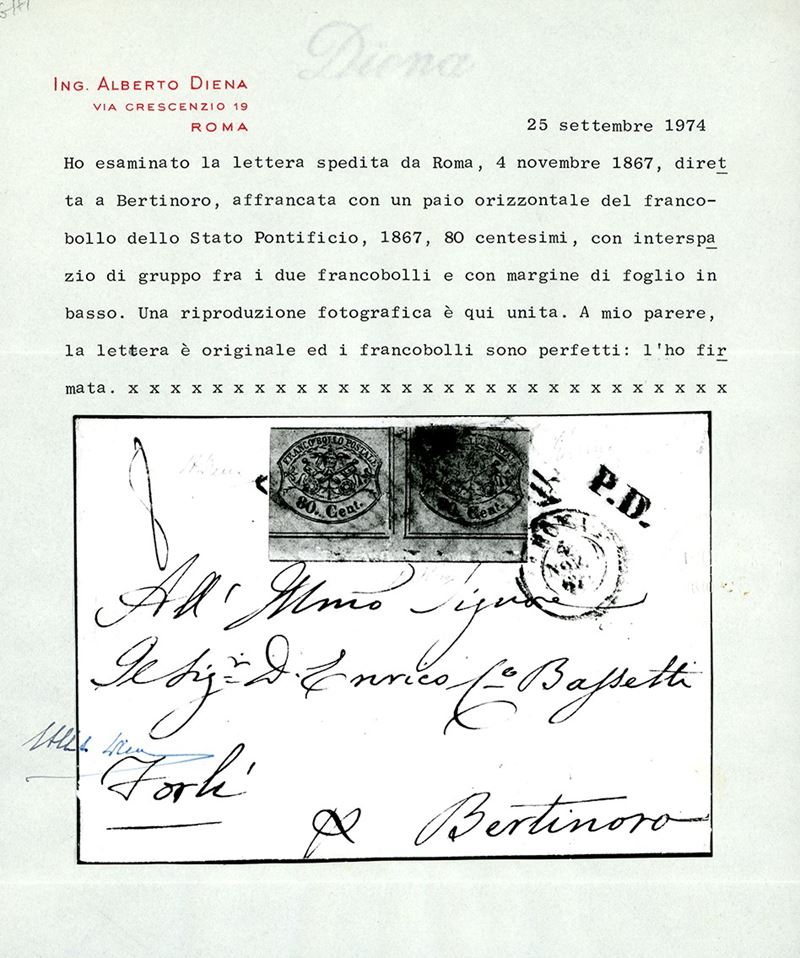 Diena
ING. ALBERTO DIENA
VIA CRESCENZIO 19
ROMA
25 settembre 1974
Ho esaminato la lettera spedita da Roma, 4 novembre 1867, diret
ta a Bertinoro, affrancata con un paio orizzontale del franco-
bollo dello Stato Pontificio, 1867, 80 centesimi, con interspa
zio di gruppo fra i due francobolli e con margine di foglio in
basso. Una riproduzione fotografica è qui unita. A mio parere,
la lettera è originale ed i francobolli sono perfetti: l'ho fir
mata. x x x x x x x x x x x x x x x x x x x x x x x x x x x x x
FRANCO BOLLO POSTALE
80. Cent.
80. Cent.
P.D.
ROMA
All' Illmo Signore
Il Sigr D. Enrico Co Bassetti
Forlì
Bertinoro